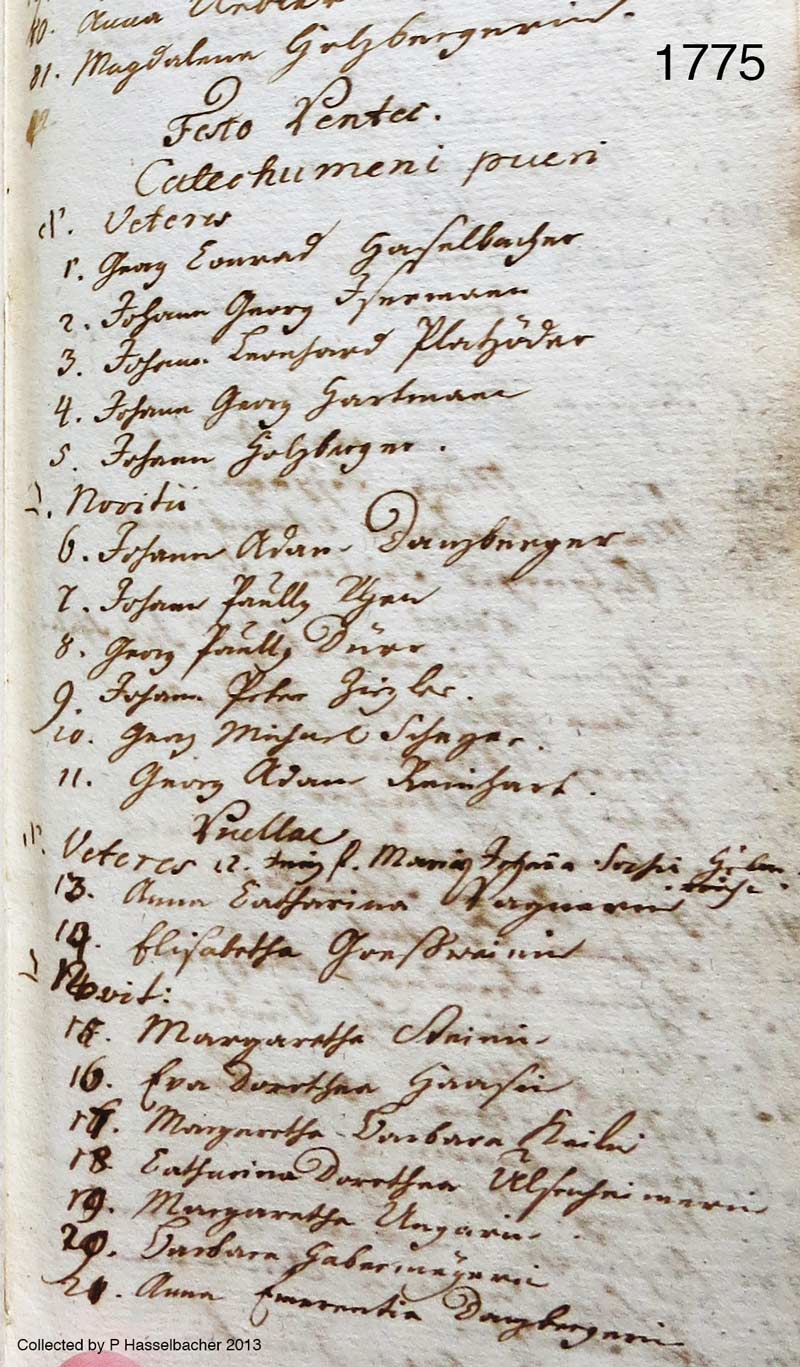 80. Anna
81. Magdalena Holzbergerin.
1775
Festo Pentec.
Catechumeni pueri
Veteres
1. Georg Conrad Haselbacher
2. Johann Georg Isermann
3. Johann Leonhard Platzöder
4. Johann Georg Hartmann
5. Johann Holzberger.
Novitii
6. Johann Adam Danzberger
7. Johann Paullg
8. Georg Paullg Dürr
9. Johann Peter Ziegler.
10. Georg Michael Scheger.
11. Georg Adam Reinhart.
Puellae
Veteres 12. Maria Johanna Sophia
13. Anna Catharina Wagnerin
14. Elisabetha Greßweinin
Novit:
15. Margaretha Steinin
16. Eva Dorothea Haasin
17. Margaretha Barbara Keilin
18 Catharina Dorothea Ulsenheimerin
19. Margaretha Ungarin.
20. Barbara Habermeÿerin
21. Anna Emerentia Danzbergerin
Collected by P Hasselbacher 2013